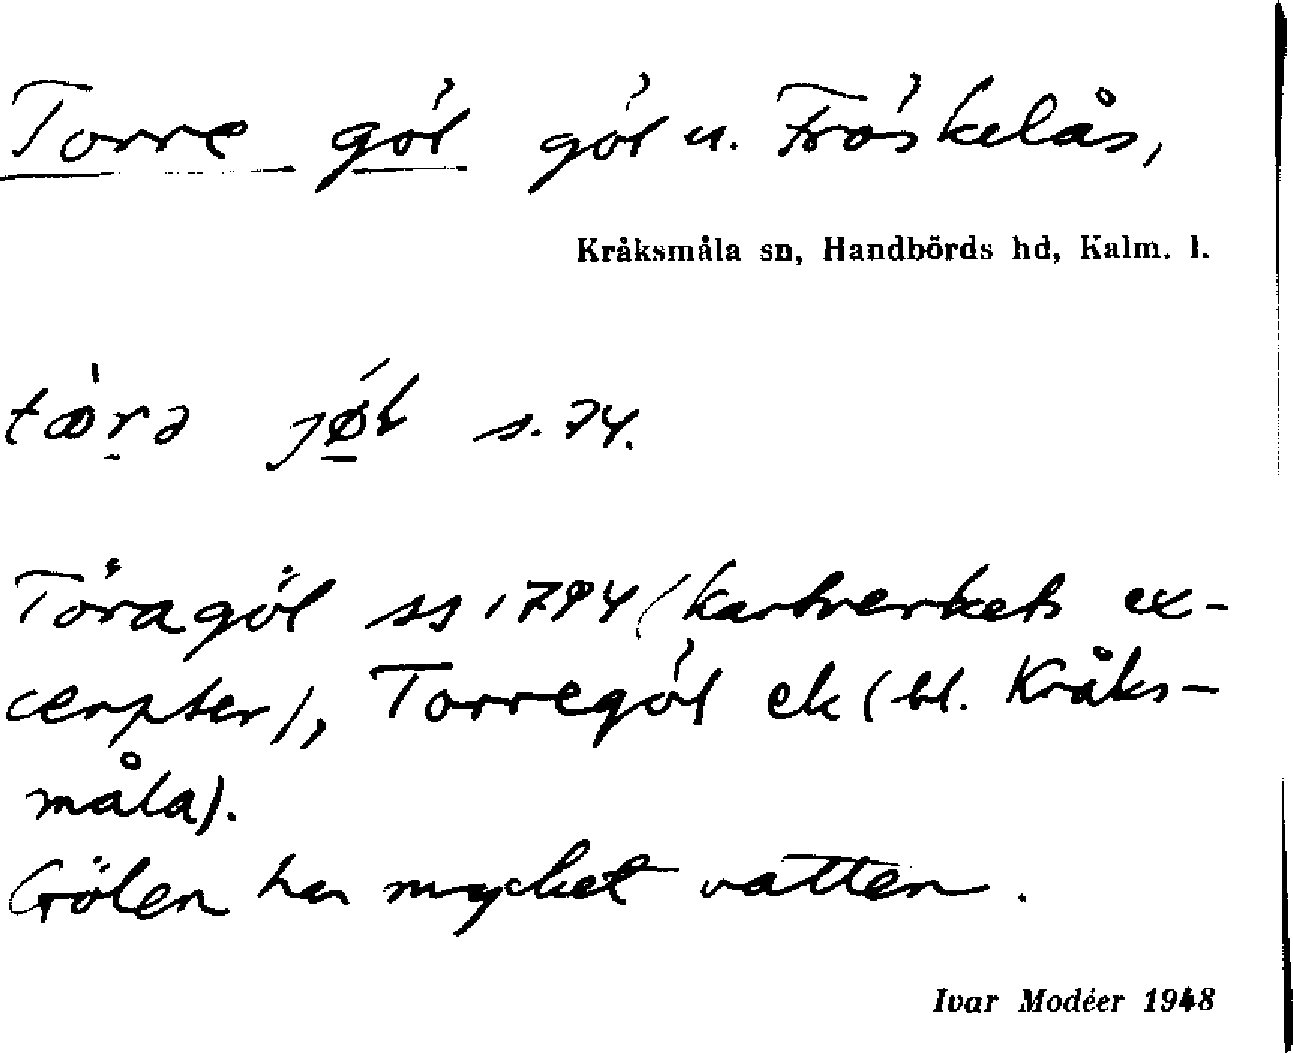 Torre göl göl u. Fröskelås,
Kråksmåla sn, Handbörds hd, Kalm. l.
s. 74.
Töragöl ss 1794 (kartverkets ex-
cerpter), Torregöl ek (bl. Kråks-
måla).
Gölen har mycket vatten.
Ivar Modéer 1948